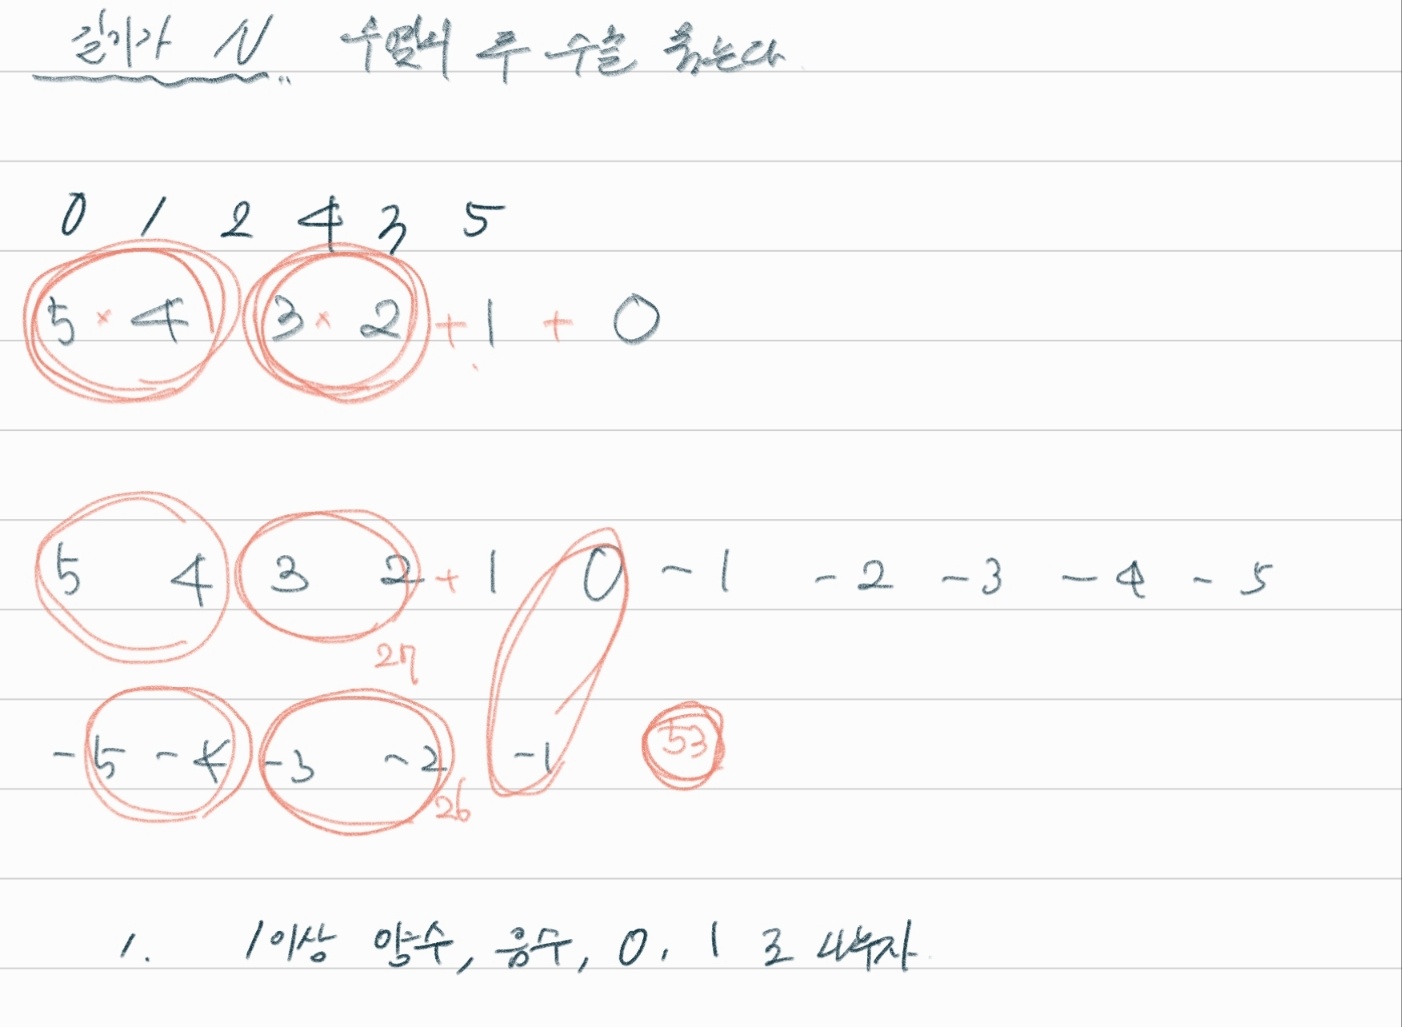 길이가 N 수열의 두 수를 묶는다
0 1 2 4 3 5
5 × 4 3 × 2 + 1 + 0
5 4 3 2 + 1 0 -1 -2 -3 -4 -5
27
-5 -4 -3 -2 -1 53
26
1. 1이상 양수, 음수, 0, 1 로 나누자